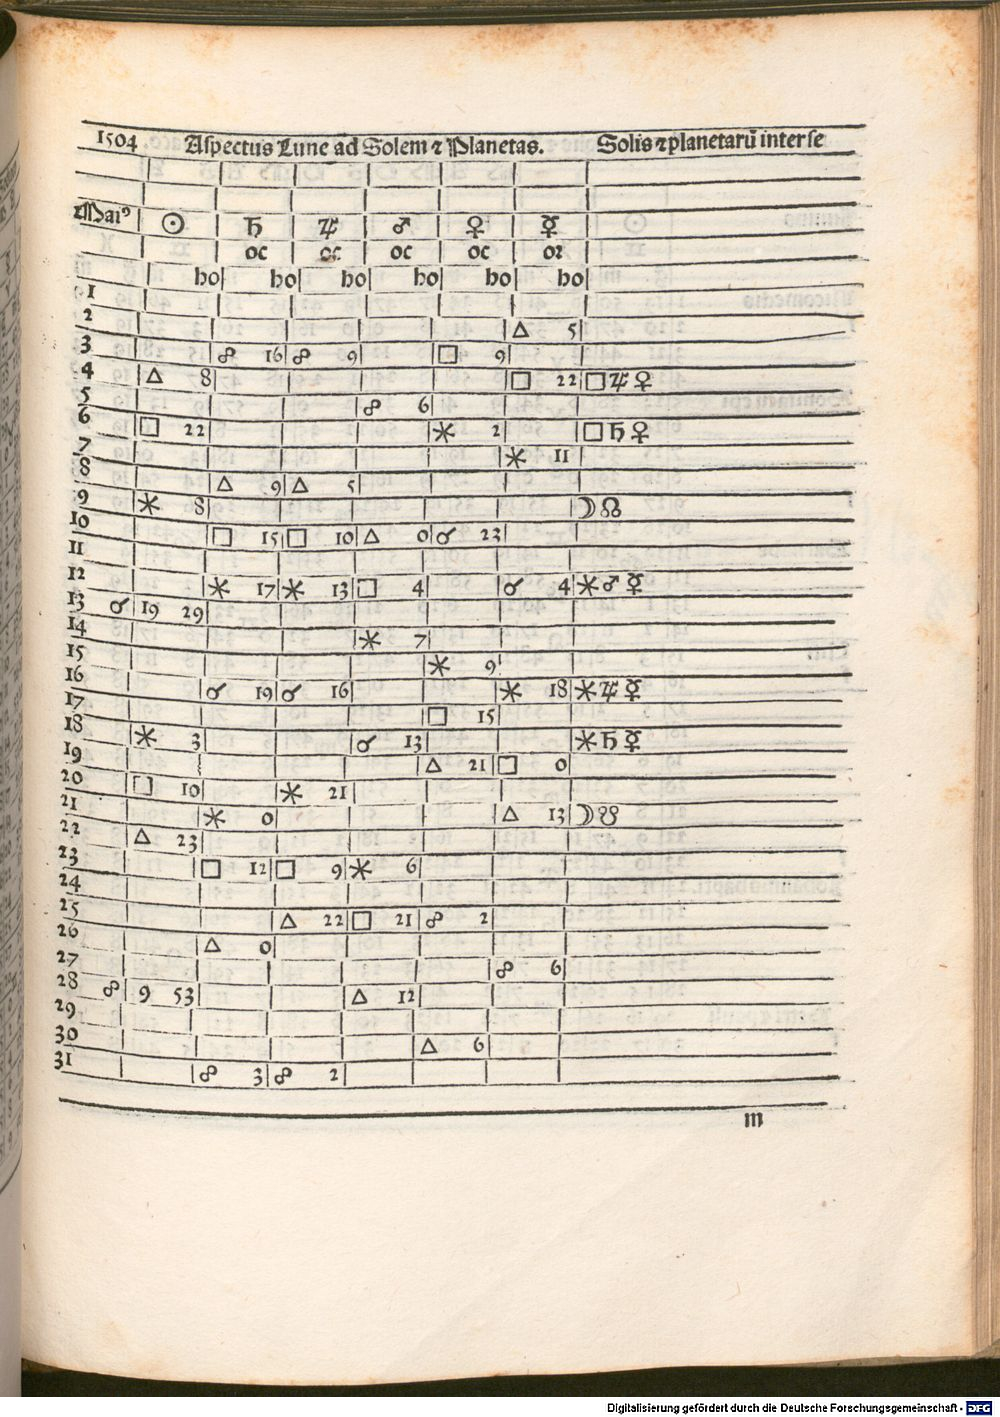 1504 Aspectus Lune ad Solem ⁊ Planetas. Solis ⁊ planetarũ inter se
Maiꝰ ☉ ♄ ♃ ♂ ♀ ☿
oc oc oc oc or
ho ho ho ho ho ho
1
2 △ 5
3 ☍ 16 ☍ 9 □ 9
4 △ 8 □ 22 □ ♃ ♀
5 ☍ 6
6 □ 22 ⚹ 2 □ ♄ ♀
7 ⚹ 11
8 △ 9 △ 5
9 ⚹ 8 ☽ ☊
10 □ 15 □ 10 △ 0 ☌ 23
11
12 ⚹ 17 ⚹ 13 □ 4 ☌ 4 ⚹ ♂ ☿
13 ☌ 19 29
14 ⚹ 7
15 ⚹ 9
16 ☌ 19 ☌ 16 ⚹ 18 ⚹ ♃ ☿
17 □ 15
18 ⚹ 3 ☌ 13 ⚹ ♄ ☿
19 △ 21 □ 0
20 □ 10 ⚹ 21
21 ⚹ 0 △ 13 ☽ ☋
22 △ 23
23 □ 12 □ 9 ⚹ 6
24
25 △ 22 □ 21 ☍ 2
26 △ 0
27 ☍ 6
28 ☍ 9 53 △ 12
29
30 △ 6
31 ☍ 3 ☍ 2
m
Digitalisierung gefördert durch die Deutsche Forschungsgemeinschaft - DFG